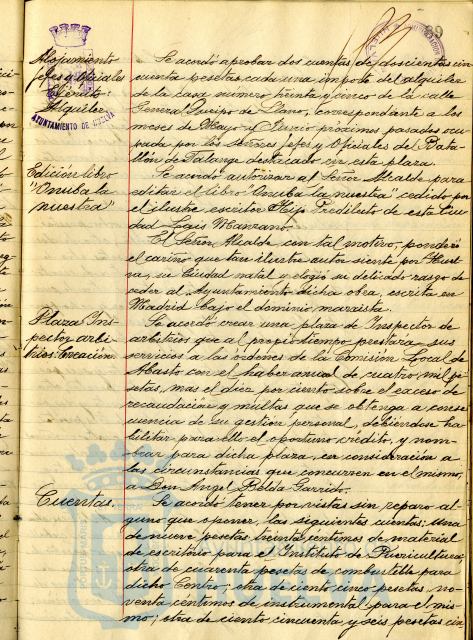 89
Alojamiento
Jefes y Oficiales
Alquiler
AYUNTAMIENTO DE HUELVA
Se acordó aprobar dos cuentas de doscientas cin
cuenta pesetas, cada una importe del alquiler
de la casa número treinta y cinco de la calle
General Queipo de Llano, correspondiente a los
meses de Mayo y Junio próximos pasados ocu
pada por los Señores Jefes y Oficiales del Bata
llón de destacado en esta plaza.
Edición libro
"Onuba la
nuestra"
Se acordó autorizar al Señor Alcalde para
editar el libro "Onuba la nuestra" cedido por
el ilustre escritor Hijo Predilecto de esta Ciu
dad Luis Manzano.
El Señor Alcalde con tal motivo, ponderó
el cariño que tan ilustre autor siente por Huel
va, su Ciudad natal y elogió su delicado rasgo de
ceder al Ayuntamiento dicha obra, escrita en
Madrid bajo el dominio marxista.
Plaza Ins-
pector arbi-
trios. Creación.
Se acordó crear una plaza de Inspector de
arbitrios que al propio tiempo prestará sus
servicios a las órdenes de la Comisión Local de
Abasto con el haber anual de cuatro mil pe
setas, mas el diez por ciento sobre el exceso de
recaudación y multas que se obtenga a conse
cuencia de su gestión personal, debiéndose ha
bilitar para ello el oportuno crédito, y nom-
brar para dicha plaza, en consideración a
las circunstancias que concurren en el mismo,
a Don Angel Belda Garrido.
Cuentas.
Se acordó tener por vistas sin reparo al-
guno que oponer, las siguientes cuentas: Una
de nueve pesetas treinta céntimos de material
de escritorio para el Instituto de Puericultura;
otra de cuarenta pesetas de combustible para
dicho Centro; otra de ciento cinco pesetas, no
venta céntimos de instrumental para el mis-
mo; otra de ciento cincuenta y seis pesetas cin